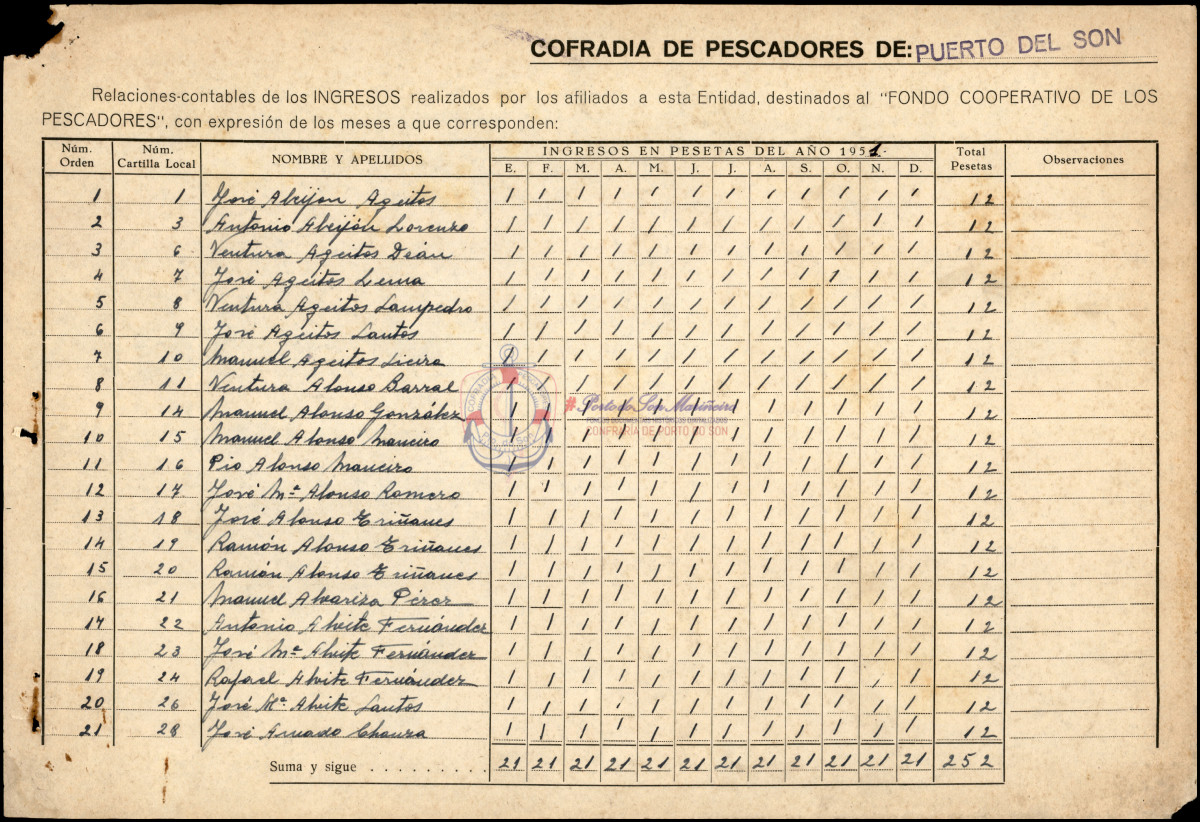 COFRADIA DE PESCADORES DE: PUERTO DEL SON
Relaciones-contables de los INGRESOS realizados por los afiliados a esta Entidad, destinados al "FONDO COOPERATIVO DE LOS
PESCADORES", con expresión de los meses a que corresponden:
Núm. Orden Núm. Cartilla Local NOMBRE Y APELLIDOS INGRESOS EN PESETAS DEL AÑO 1951.- Total Pesetas Observaciones
E. F. M. A. M. J. J. A. S. O. N. D.
1 1 José Abeijón Ageitos 1 1 1 1 1 1 1 1 1 1 1 1 12
2 3 Antonio Abeijón Lorenzo 1 1 1 1 1 1 1 1 1 1 1 1 12
3 6 Ventura Ageitos Deán 1 1 1 1 1 1 1 1 1 1 1 1 12
4 7 José Ageitos Lema 1 1 1 1 1 1 1 1 1 1 1 1 12
5 8 Ventura Ageitos Sampedro 1 1 1 1 1 1 1 1 1 1 1 1 12
6 9 José Ageitos Santos 1 1 1 1 1 1 1 1 1 1 1 1 12
7 10 Manuel Ageitos Sieira 1 1 1 1 1 1 1 1 1 1 1 1 12
8 11 Ventura Alonso Barral 1 1 1 1 1 1 1 1 1 1 1 1 12
9 14 Manuel Alonso González 1 1 1 1 1 1 1 1 1 1 1 1 12
10 15 Manuel Alonso Maneiro 1 1 1 1 1 1 1 1 1 1 1 1 12
11 16 Pio Alonso Maneiro 1 1 1 1 1 1 1 1 1 1 1 1 12
12 17 José Mª Alonso Romero 1 1 1 1 1 1 1 1 1 1 1 1 12
13 18 José Alonso Triñanes 1 1 1 1 1 1 1 1 1 1 1 1 12
14 19 Ramón Alonso Triñanes 1 1 1 1 1 1 1 1 1 1 1 1 12
15 20 Ramón Alonso Triñanes 1 1 1 1 1 1 1 1 1 1 1 1 12
16 21 Manuel Alvariza Pérez 1 1 1 1 1 1 1 1 1 1 1 1 12
17 22 Antonio Alvite Fernández 1 1 1 1 1 1 1 1 1 1 1 1 12
18 23 José Mª Alvite Fernández 1 1 1 1 1 1 1 1 1 1 1 1 12
19 24 Rafael Alvite Fernández 1 1 1 1 1 1 1 1 1 1 1 1 12
20 26 José Mª Alvite Santos 1 1 1 1 1 1 1 1 1 1 1 1 12
21 28 José Amado Chouza 1 1 1 1 1 1 1 1 1 1 1 1 12
Suma y sigue . . . . . . . . . . 21 21 21 21 21 21 21 21 21 21 21 21 252
#Porto do Son Mariñeiro
CONFRARÍA DE PORTO DO SON